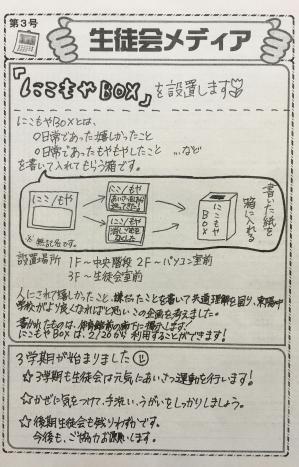 第3号
生徒会メディア
「にこもやBOX」を設置します
にこもやBOXとは、
○日常であった嬉しかったこと
○日常であったもやもやしたこと …など
を書いて入れてもらう箱です。
にこ/もや
にこ/もや
にこ/もや
にこもやBOX
書いた紙を箱に入れる
※無記名です。
設置場所 1F~中央階段 2F~パソコン室前
3F~生徒会室前
人にされて嬉しかったこと、嫌だったことを書いて共通理解を図り、
学校がより良くなればと思いこの企画を考えました。
書かれたものは、
にこもやBOXは、2/26から利用することができます!
3学期が始まりました
☆3学期も生徒会は元気にあいさつ運動を行います!
☆かぜに気をつけて、手洗い、うがいをしっかりしましょう。
☆後期生徒会も残りわずかです。
今後も、ご協力お願いします。